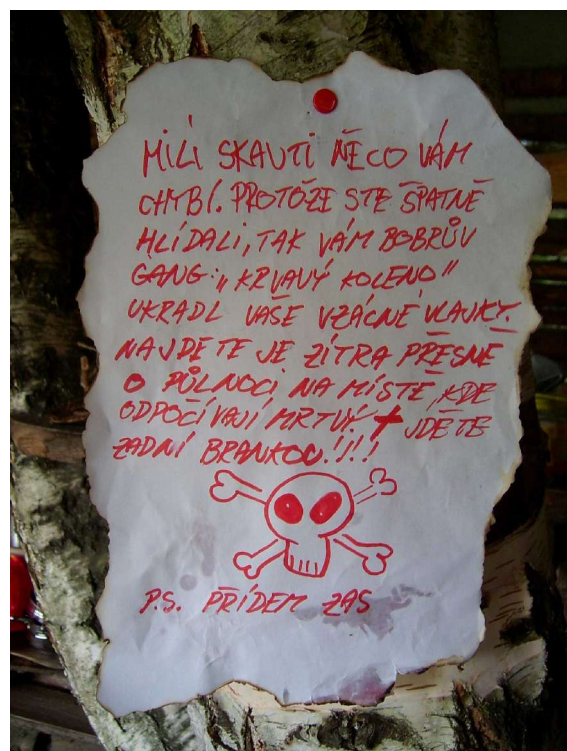 MILÍ SKAUTI NĚCO VÁM
CHYBÍ. PROTOŽE STE ŠPATNĚ
HLÍDALI, TAK VÁM BOBRŮV
GANG: „KRVAVÝ KOLENO"
UKRADL VAŠE VZÁCNÉ VLAJKY.
NAJDETE JE ZÍTRA PŘESNĚ
O PŮLNOCI NA MÍSTĚ, KDE
ODPOČÍVAJÍ MRTVÝ. ✝ JDĚTE
ZADNÍ BRANKOU!!!!
P.S. PŘÍDEM ZAS